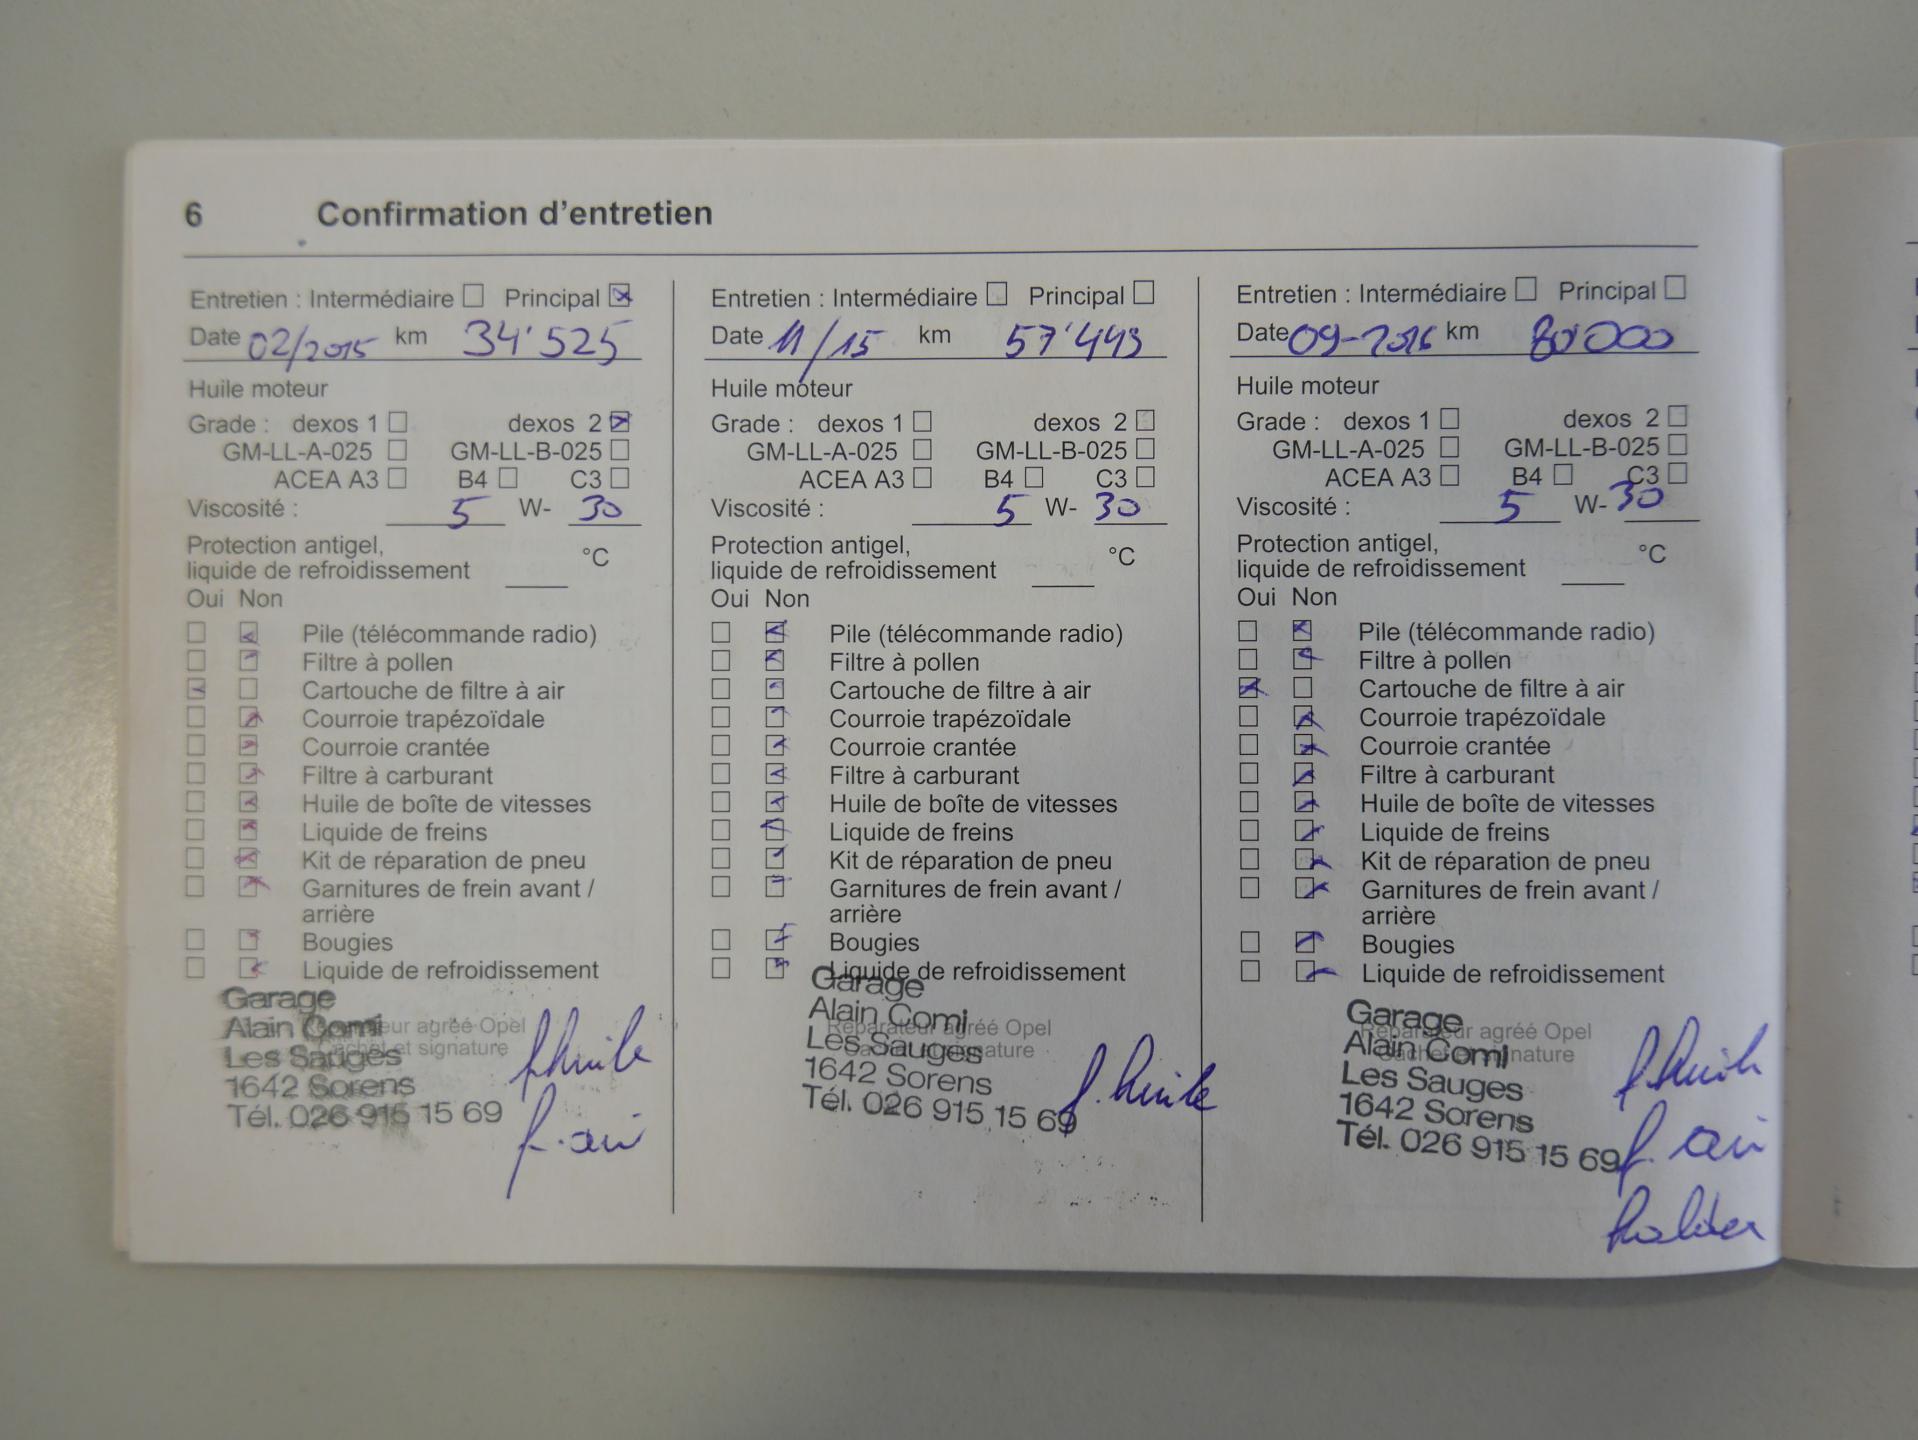 6 Confirmation d'entretien
Entretien : Intermédiaire Principal
Date 02/2015 km 34'525
Huile moteur
Grade : dexos 1 dexos 2
GM-LL-A-025 GM-LL-B-025
ACEA A3 B4 C3
Viscosité : 5 W- 30
Protection antigel,
liquide de refroidissement °C
Oui Non
Pile (télécommande radio)
Filtre à pollen
Cartouche de filtre à air
Courroie trapézoïdale
Courroie crantée
Filtre à carburant
Huile de boîte de vitesses
Liquide de freins
Kit de réparation de pneu
Garnitures de frein avant /
arrière
Bougies
Liquide de refroidissement
Garage
Alain Comi
Les Sauges
1642 Sorens
Tél. 026 915 15 69
agréé Opel
Cachet et signature
f.huile
f.air
Entretien : Intermédiaire Principal
Date 11/15 km 57'443
Huile moteur
Grade : dexos 1 dexos 2
GM-LL-A-025 GM-LL-B-025
ACEA A3 B4 C3
Viscosité : 5 W- 30
Protection antigel,
liquide de refroidissement °C
Oui Non
Pile (télécommande radio)
Filtre à pollen
Cartouche de filtre à air
Courroie trapézoïdale
Courroie crantée
Filtre à carburant
Huile de boîte de vitesses
Liquide de freins
Kit de réparation de pneu
Garnitures de frein avant /
arrière
Bougies
Liquide de refroidissement
Garage
Alain Comi
Les Sauges
1642 Sorens
Tél. 026 915 15 69
Réparateur agréé Opel
Cachet et signature
f.huile
Entretien : Intermédiaire Principal
Date 09-2016 km 80'000
Huile moteur
Grade : dexos 1 dexos 2
GM-LL-A-025 GM-LL-B-025
ACEA A3 B4 C3
Viscosité : 5 W- 30
Protection antigel,
liquide de refroidissement °C
Oui Non
Pile (télécommande radio)
Filtre à pollen
Cartouche de filtre à air
Courroie trapézoïdale
Courroie crantée
Filtre à carburant
Huile de boîte de vitesses
Liquide de freins
Kit de réparation de pneu
Garnitures de frein avant /
arrière
Bougies
Liquide de refroidissement
Garage
Alain Comi
Les Sauges
1642 Sorens
Tél. 026 915 15 69
Réparateur agréé Opel
Cachet et signature
f.huile
f.air